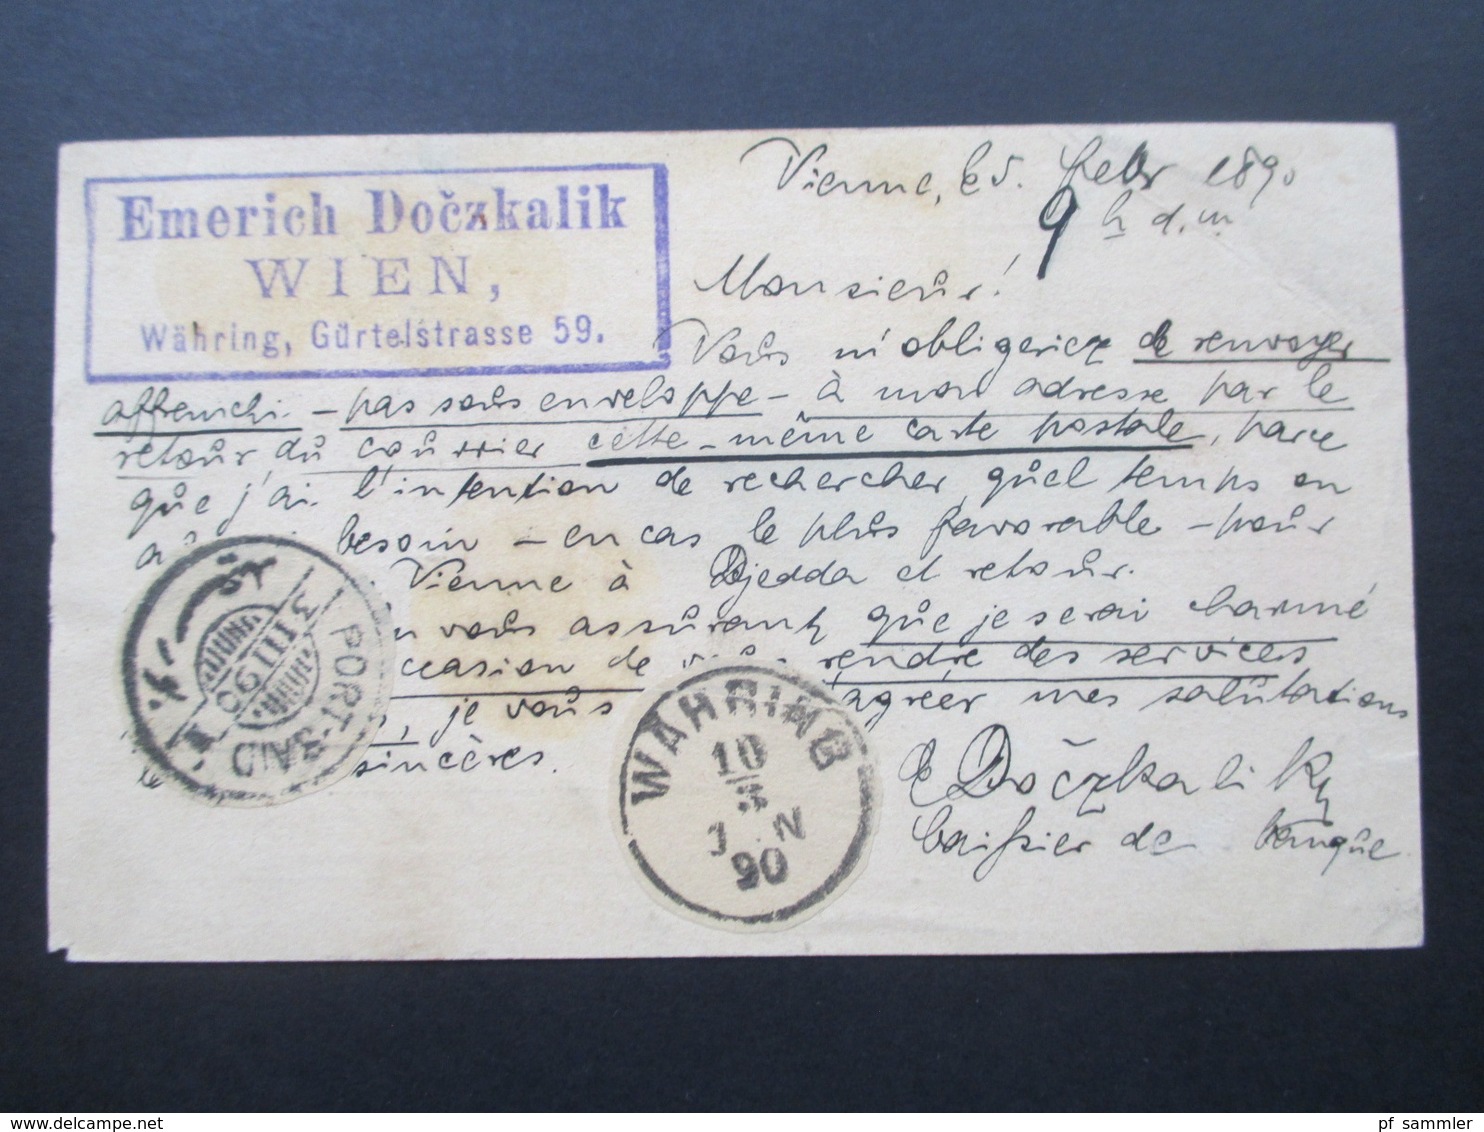 Emerich Dočzkalik
WIEN,
Währing, Gürtelstrasse 59.
Vienne, le 5. Febr 1890
9 h d. m.
Monsieur!
Vous m'obligeriez de renvoyer
affranchi – pas sous enveloppe – à mon adresse par le
retour du courrier cette-même carte postale, parce
que j'ai l'intention de rechercher, quel temps on
a besoin – en cas le plus favorable – pour
Vienne à Djedda et retour.
vous assurant, que je serai charmé
occasion de vous rendre des services
, je vous d'agréer mes salutations
sincères.
E Dočzkalik
Caissier de banque
PORT-SAID
3 III 90
WÄHRING
10
3
90
pf_sammler
delcampe.net